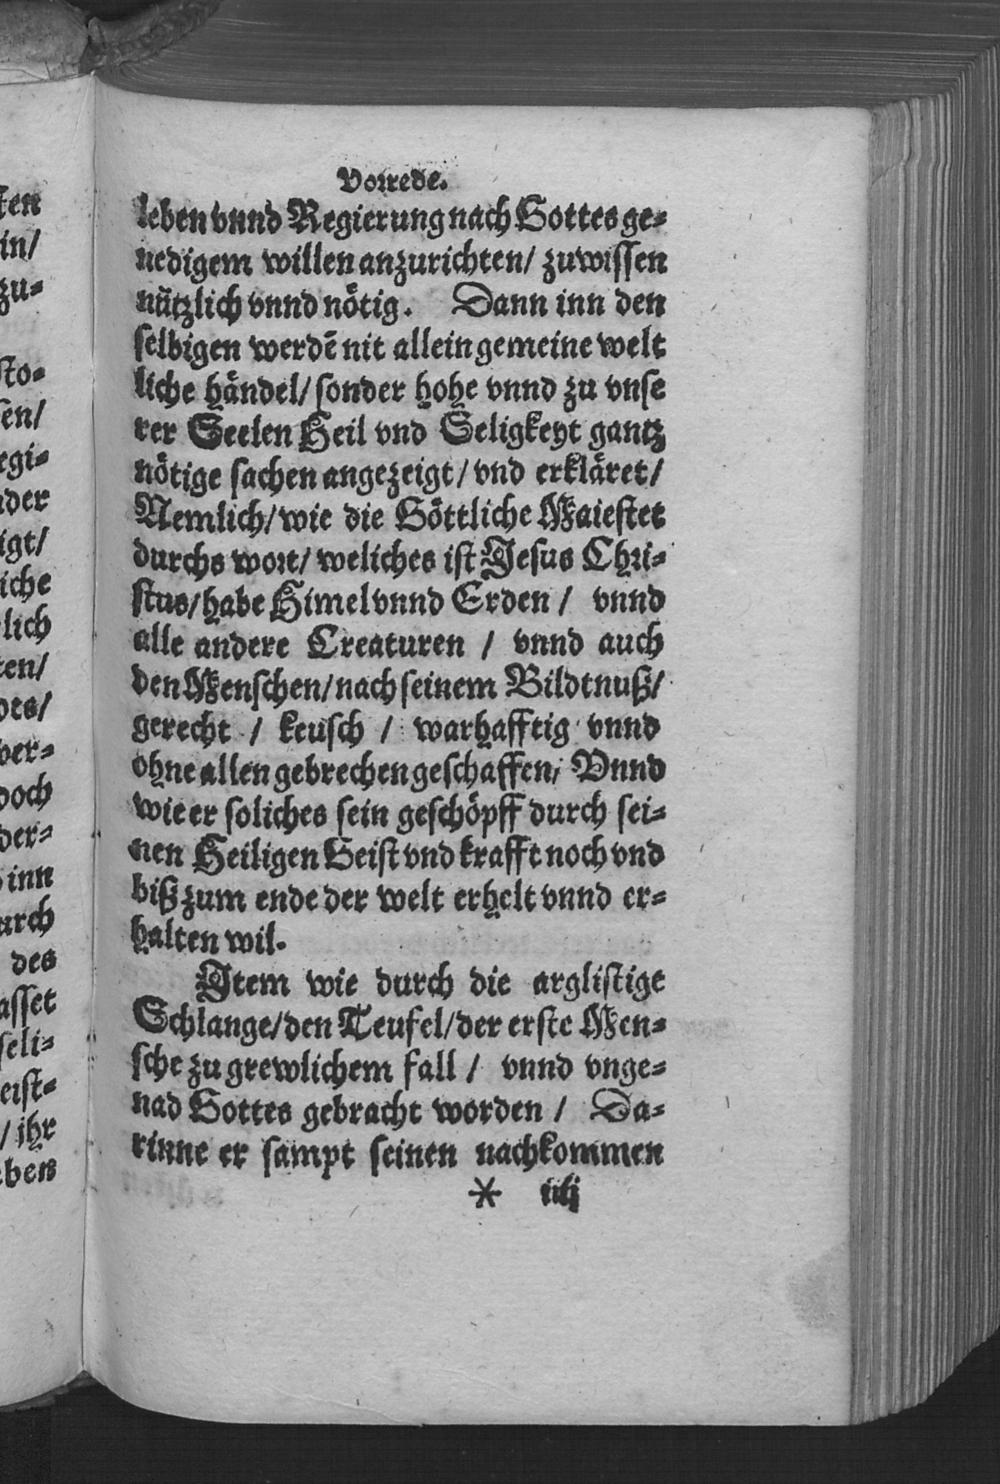 Vorrede.
leben vnnd Regierung nach Gottes ge-
nedigem willen anzurichten/ zuwissen
nützlich vnnd nötig. Dann inn den
selbigen werdẽ nit allein gemeine welt
liche händel/ sonder hohe vnnd zu vnse
rer Seelen Heil vnd Seligkeyt gantz
nötige sachen angezeigt/ vnd erkläret/
Nemlich/ wie die Göttliche Maiestet
durchs wort/ weliches ist Jesus Chri-
stus/ habe Himel vnnd Erden / vnnd
alle andere Creaturen / vnnd auch
den Menschen/ nach seinem Bildtnuß/
gerecht / keusch / warhafftig vnnd
ohne allen gebrechen geschaffen/ Vnnd
wie er soliches sein geschöpff durch sei-
nen Heiligen Geist vnd krafft noch vnd
biß zum ende der welt erhelt vnnd er-
halten wil.
Item wie durch die arglistige
Schlange/ den Teufel/ der erste Men-
sche zu grewlichem fall / vnnd vnge-
nad Gottes gebracht worden / Da-
rinne er sampt seinen nachkommen
* iiij